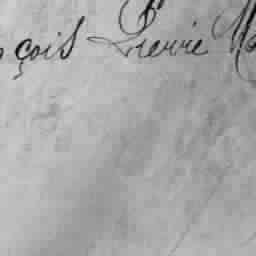 çois Pierre